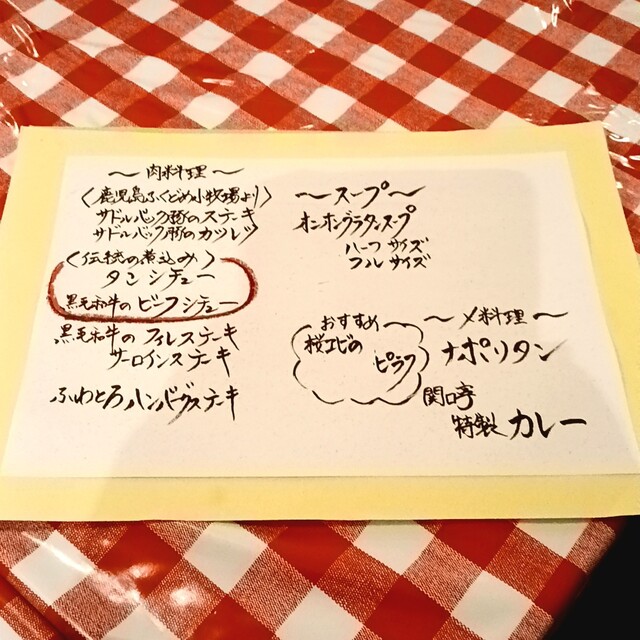 〜肉料理〜
〈鹿児島ふくどめ小牧場より〉
サドルバック豚のステーキ
サドルバック豚のカツレツ
〈伝統の煮込み〉
タンシチュー
黒毛和牛のビーフシチュー
黒毛和牛のフィレステーキ
サーロインステーキ
ふわとろハンバーグステーキ
〜スープ〜
オニオングラタンスープ
ハーフサイズ
フルサイズ
おすすめ
桜エビの
ピラフ
〜〆料理〜
ナポリタン
関口亭
特製カレー